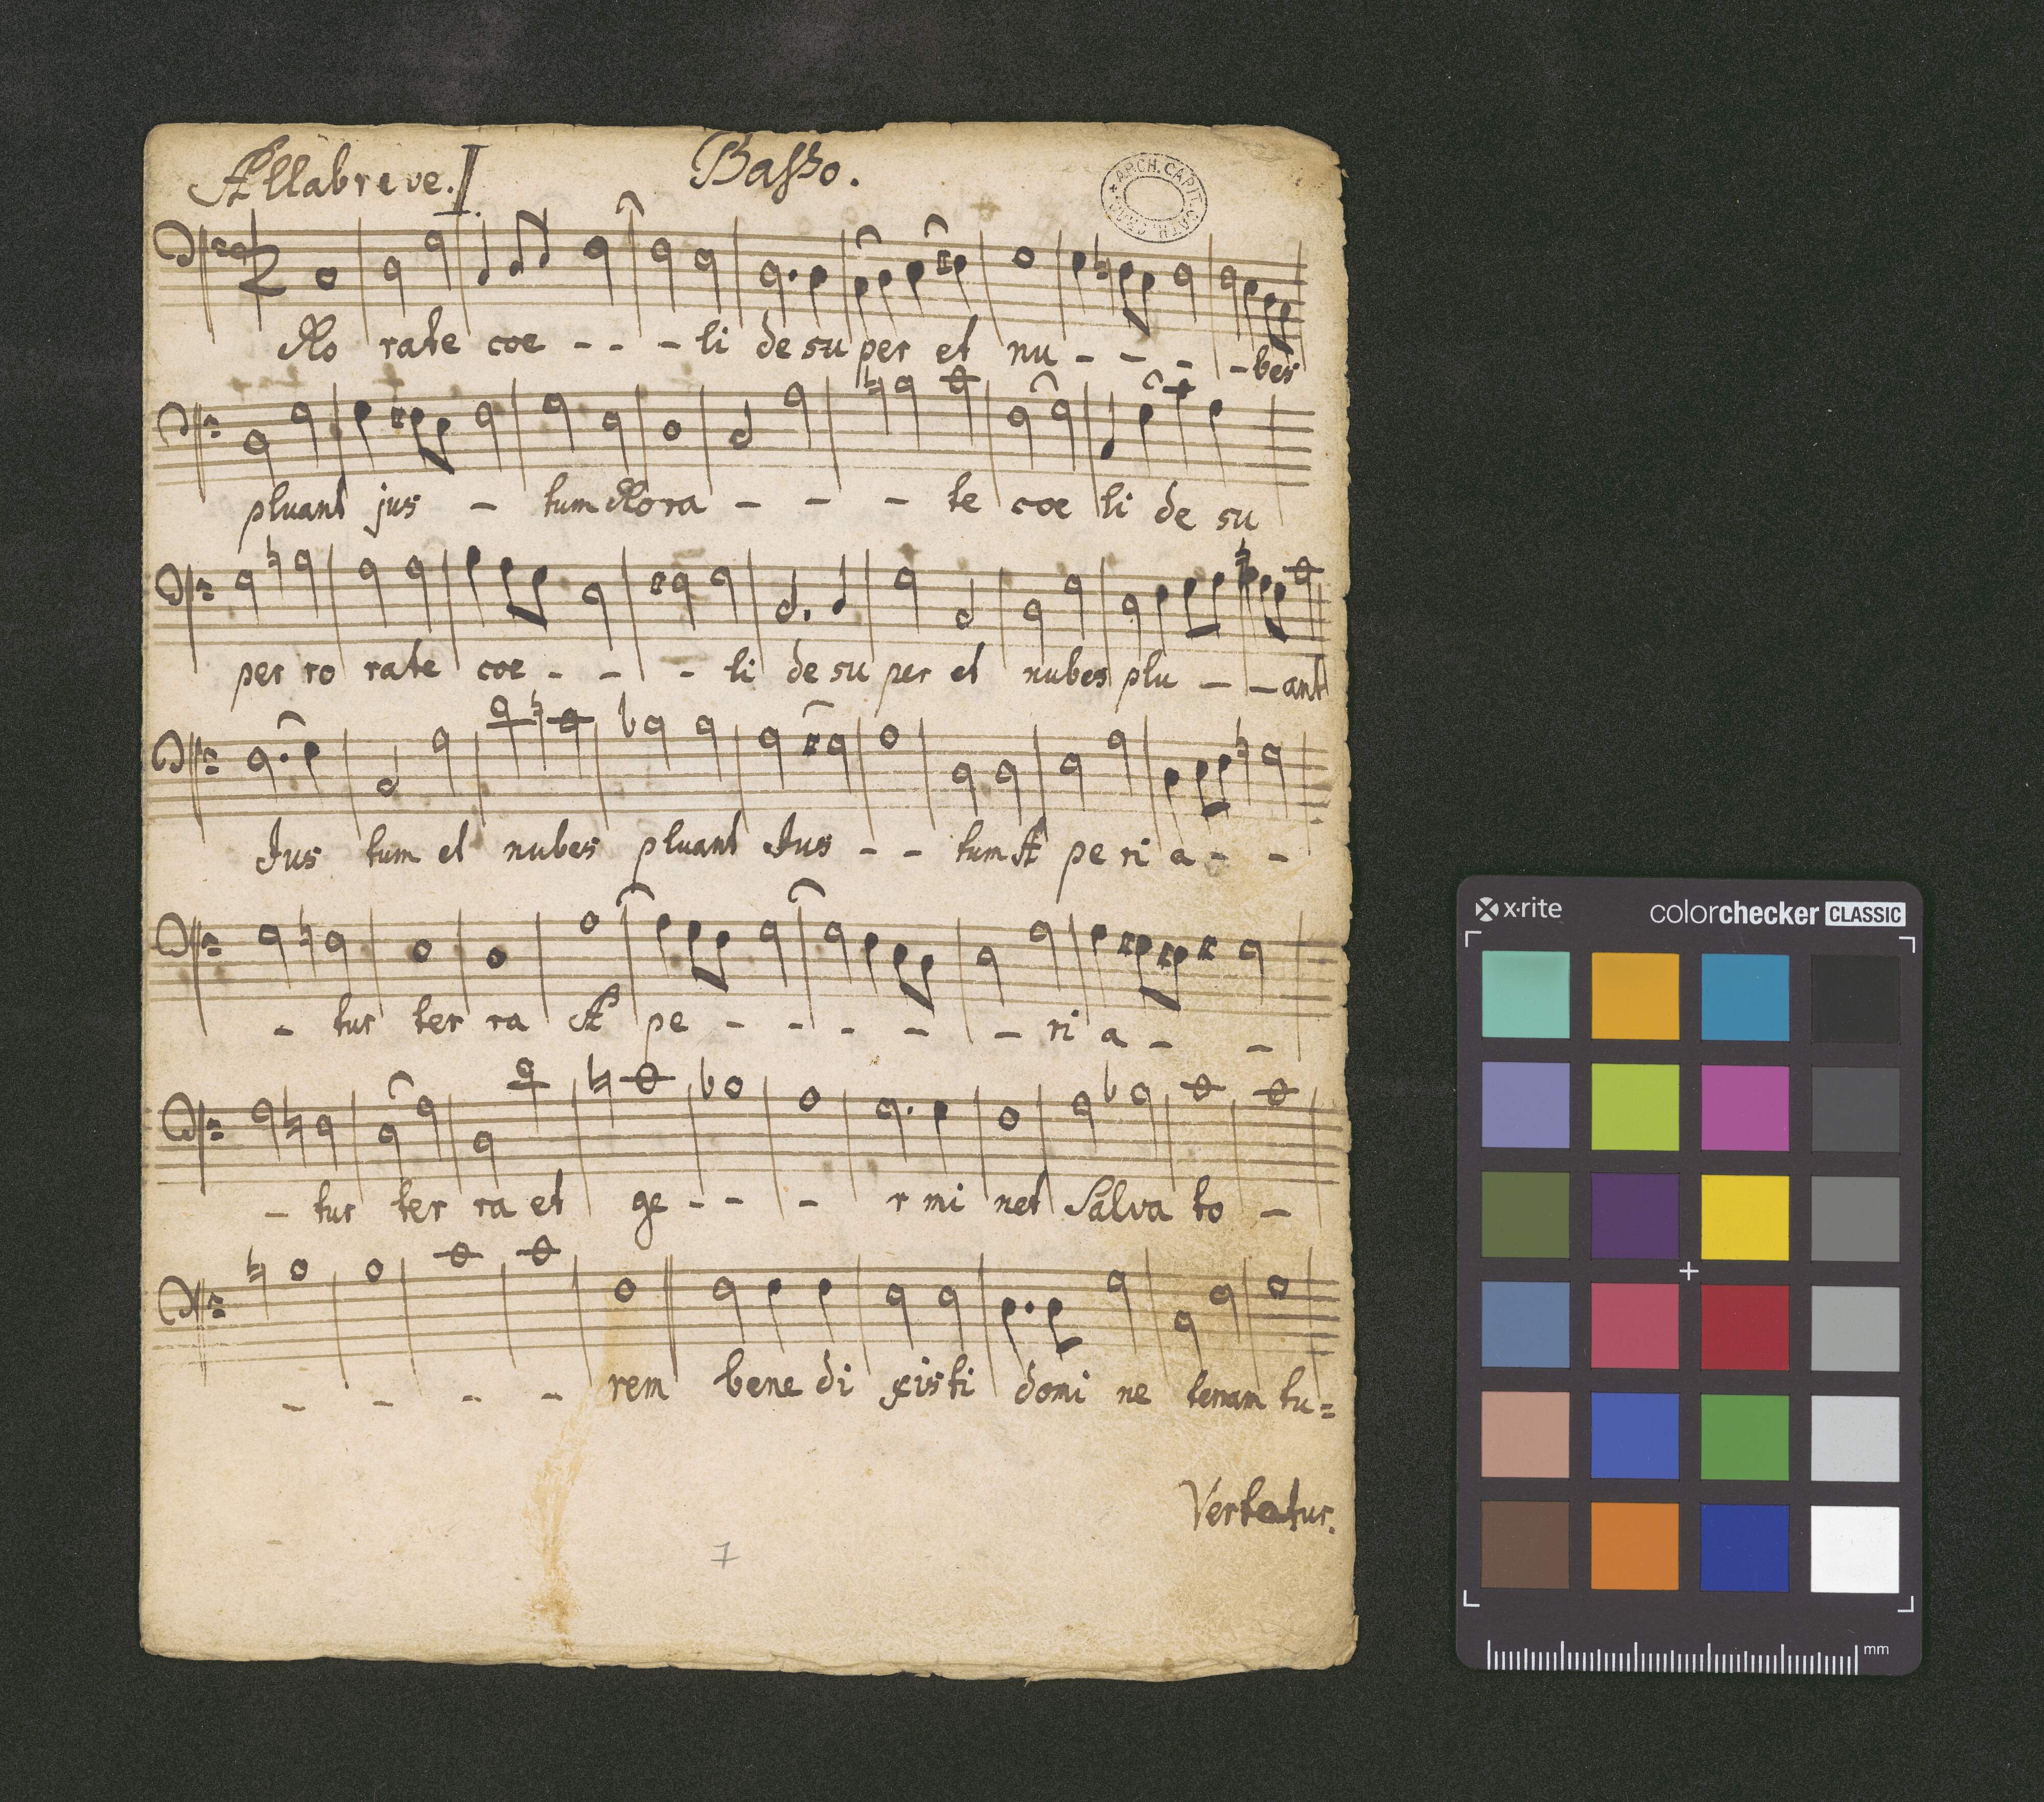 Allabreve. I. Basso.
ARCH. CAPIT. CATH. CRAC.
Ro rate coe - - - li de su per et nu - - - - bes
pluant jus - tum Ro ra - - - te coe li de su
per ro rate coe - - - li de su per et nubes plu - - ant
Jus tum et nubes pluant Jus - - tum A pe ri a - -
- tur ter ra A pe - - - - - ri a - -
- tur ter ra et ge - - - r mi net Salva to -
- - - - rem bene di xisti domi ne terram tu=
Vertatur.
7
x·rite colorchecker CLASSIC
mm